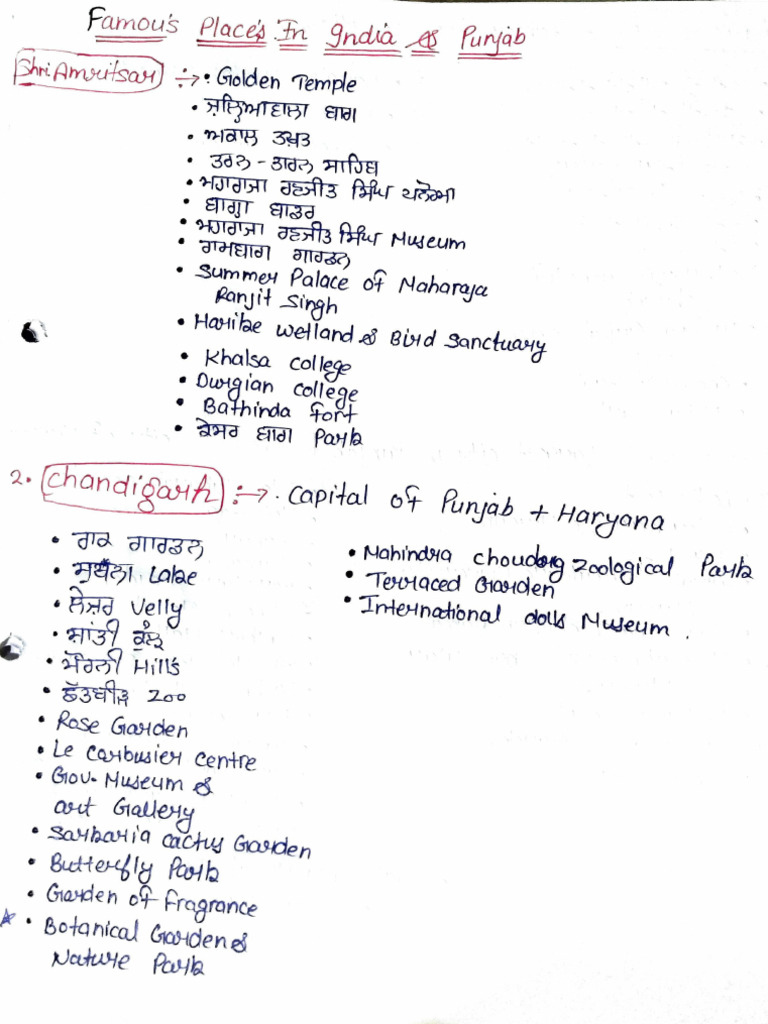 Famous Places In India & Punjab
Shri Amritsar :→ • Golden Temple
• ਜਲ੍ਹਿਆਵਾਲਾ ਬਾਗ
• ਅਕਾਲ ਤਖ਼ਤ
• ਤਰਨ - ਤਾਰਨ ਸਾਹਿਬ
• ਮਹਾਰਾਜਾ ਰਣਜੀਤ ਸਿੰਘ ਪਨੋਰਮਾ
• ਬਾਗਾ ਬਾਡਰ
• ਮਹਾਰਾਜਾ ਰਣਜੀਤ ਸਿੰਘ Museum
• ਰਾਮਬਾਗ ਗਾਰਡਨ
• Summer Palace of Maharaja
Ranjit Singh
• Harike Welland & Bird Sanctuary
• Khalsa College
• Durgian College
• Bathinda Fort
• ਕੇਸਰ ਬਾਗ Park
2. Chandigarh :→ . Capital of Punjab + Haryana
• ਰਾਕ ਗਾਰਡਨ
• ਸੁਖਨਾ Lake
• ਲੇਜ਼ਰ Velly
• ਸ਼ਾਂਤੀ ਕੁੰਜ
• ਮੋਰਨੀ Hills
• ਛੱਤਬੀੜ Zoo
• Rose Garden
• Le Corbusier Centre
• Gov. Museum &
art Gallery
• Sarbaria cactus Garden
• Butterfly Park
• Garden of fragrance
• Botanical Garden &
Nature Park
• Mahindra Zoological Park
• Terraced Garden
• International dolls Museum.